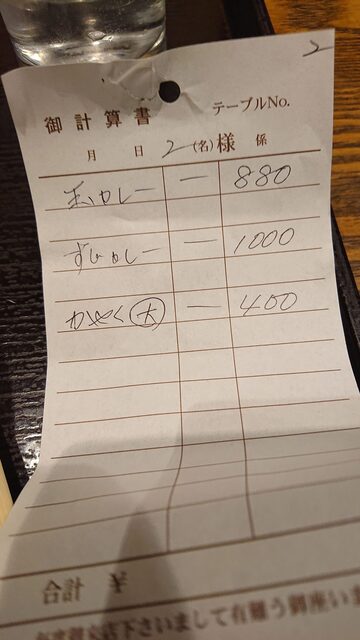 2
御計算書 テーブルNo.
月 日 2(名)様 係
カレー 一 880
すじカレー 一 1000
かやく 大 一 400
合計 ¥
店下さいまして有難う御座いま